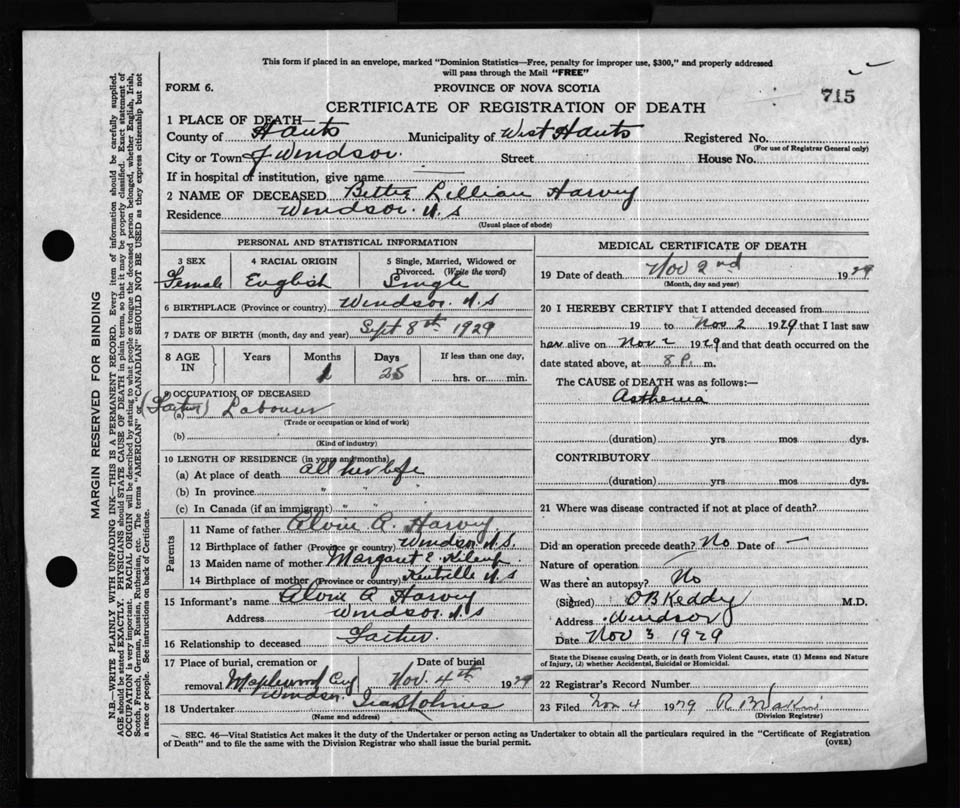 This form if placed in an envelope, marked "Dominion Statistics—Free, penalty for improper use, $300," and properly addressed
will pass through the Mail "FREE"
FORM 6.
PROVINCE OF NOVA SCOTIA
715
CERTIFICATE OF REGISTRATION OF DEATH
1 PLACE OF DEATH—
County of Hants Municipality of West Hants Registered No.
(For use of Registrar General only)
City or Town of Windsor. Street House No.
If in hospital or institution, give name
2 NAME OF DECEASED Bettie Lillian Harvey
Residence Windsor. N.S
(Usual place of abode)
PERSONAL AND STATISTICAL INFORMATION
3 SEX 4 RACIAL ORIGIN 5 Single, Married, Widowed or
Divorced. (Write the word)
Female English Single
6 BIRTHPLACE (Province or country) Windsor. N.S
7 DATE OF BIRTH (month, day and year) Sept 8th 1929
8 AGE IN Years Months Days If less than one day,
1 25 hrs. or min.
9 OCCUPATION OF DECEASED
(Father) (a) Labourer
(Trade or occupation or kind of work)
(b)
(Kind of industry)
10 LENGTH OF RESIDENCE (in years and months)
(a) At place of death all her life
(b) In province " "
(c) In Canada (if an immigrant) " "
Parents
11 Name of father Alvin A. Harvey
12 Birthplace of father (Province or country) Windsor N.S.
13 Maiden name of mother Margaret E.
14 Birthplace of mother (Province or country) Kentville N S
15 Informant's name Alvin A Harvey
Address Windsor N.S
16 Relationship to deceased Father.
17 Place of burial, cremation or Date of burial
removal Maplewood Cey Nov. 4th 1929
Windsor
18 Undertaker Holmes
(Name and address)
MEDICAL CERTIFICATE OF DEATH
19 Date of death Nov 2nd 1929
(Month, day and year)
20 I HEREBY CERTIFY that I attended deceased from
19 to Nov 2 1929 that I last saw
her alive on Nov 2 1929 and that death occurred on the
date stated above, at 8 P. m.
The CAUSE of DEATH was as follows:—
Asthenia
(duration) yrs mos dys.
CONTRIBUTORY
(duration) yrs. mos. dys.
21 Where was disease contracted if not at place of death?
Did an operation precede death? No Date of —
Nature of operation
Was there an autopsy? No
(Signed) O B Keddy M.D.
Address Windsor
Date Nov 3 1929
State the Disease causing Death, or in death from Violent Causes, state (1) Means and Nature
of Injury, (2) whether Accidental, Suicidal or Homicidal.
22 Registrar's Record Number
23 Filed Nov 4 1929
(Division Registrar)
SEC. 46—Vital Statistics Act makes it the duty of the Undertaker or person acting as Undertaker to obtain all the particulars required in the "Certificate of Registration
of Death" and to file the same with the Division Registrar who shall issue the burial permit. (OVER)
MARGIN RESERVED FOR BINDING
N.B.—WRITE PLAINLY WITH UNFADING INK—THIS IS A PERMANENT RECORD. Every item of information should be carefully supplied.
AGE should be stated EXACTLY. PHYSICIANS should STATE CAUSE OF DEATH in plain terms, so that it may be properly classified. Exact statement of
OCCUPATION is very important. RACIAL ORIGIN will be described by stating to what people or tongue the deceased person belonged, whether English, Irish,
Scotch, French, German, Russian, Ruthenian, etc. The terms "AMERICAN" or "CANADIAN" SHOULD NOT BE USED as they express citizenship but not
a race or people. See instructions on back of Certificate.